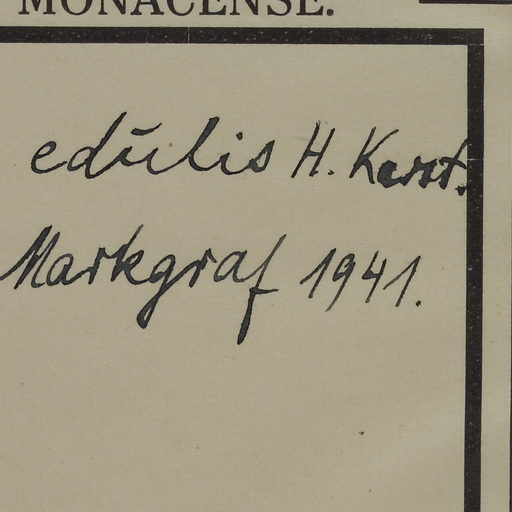 MONACENSE.
edŭlis H. Karst.
Markgraf 1941.